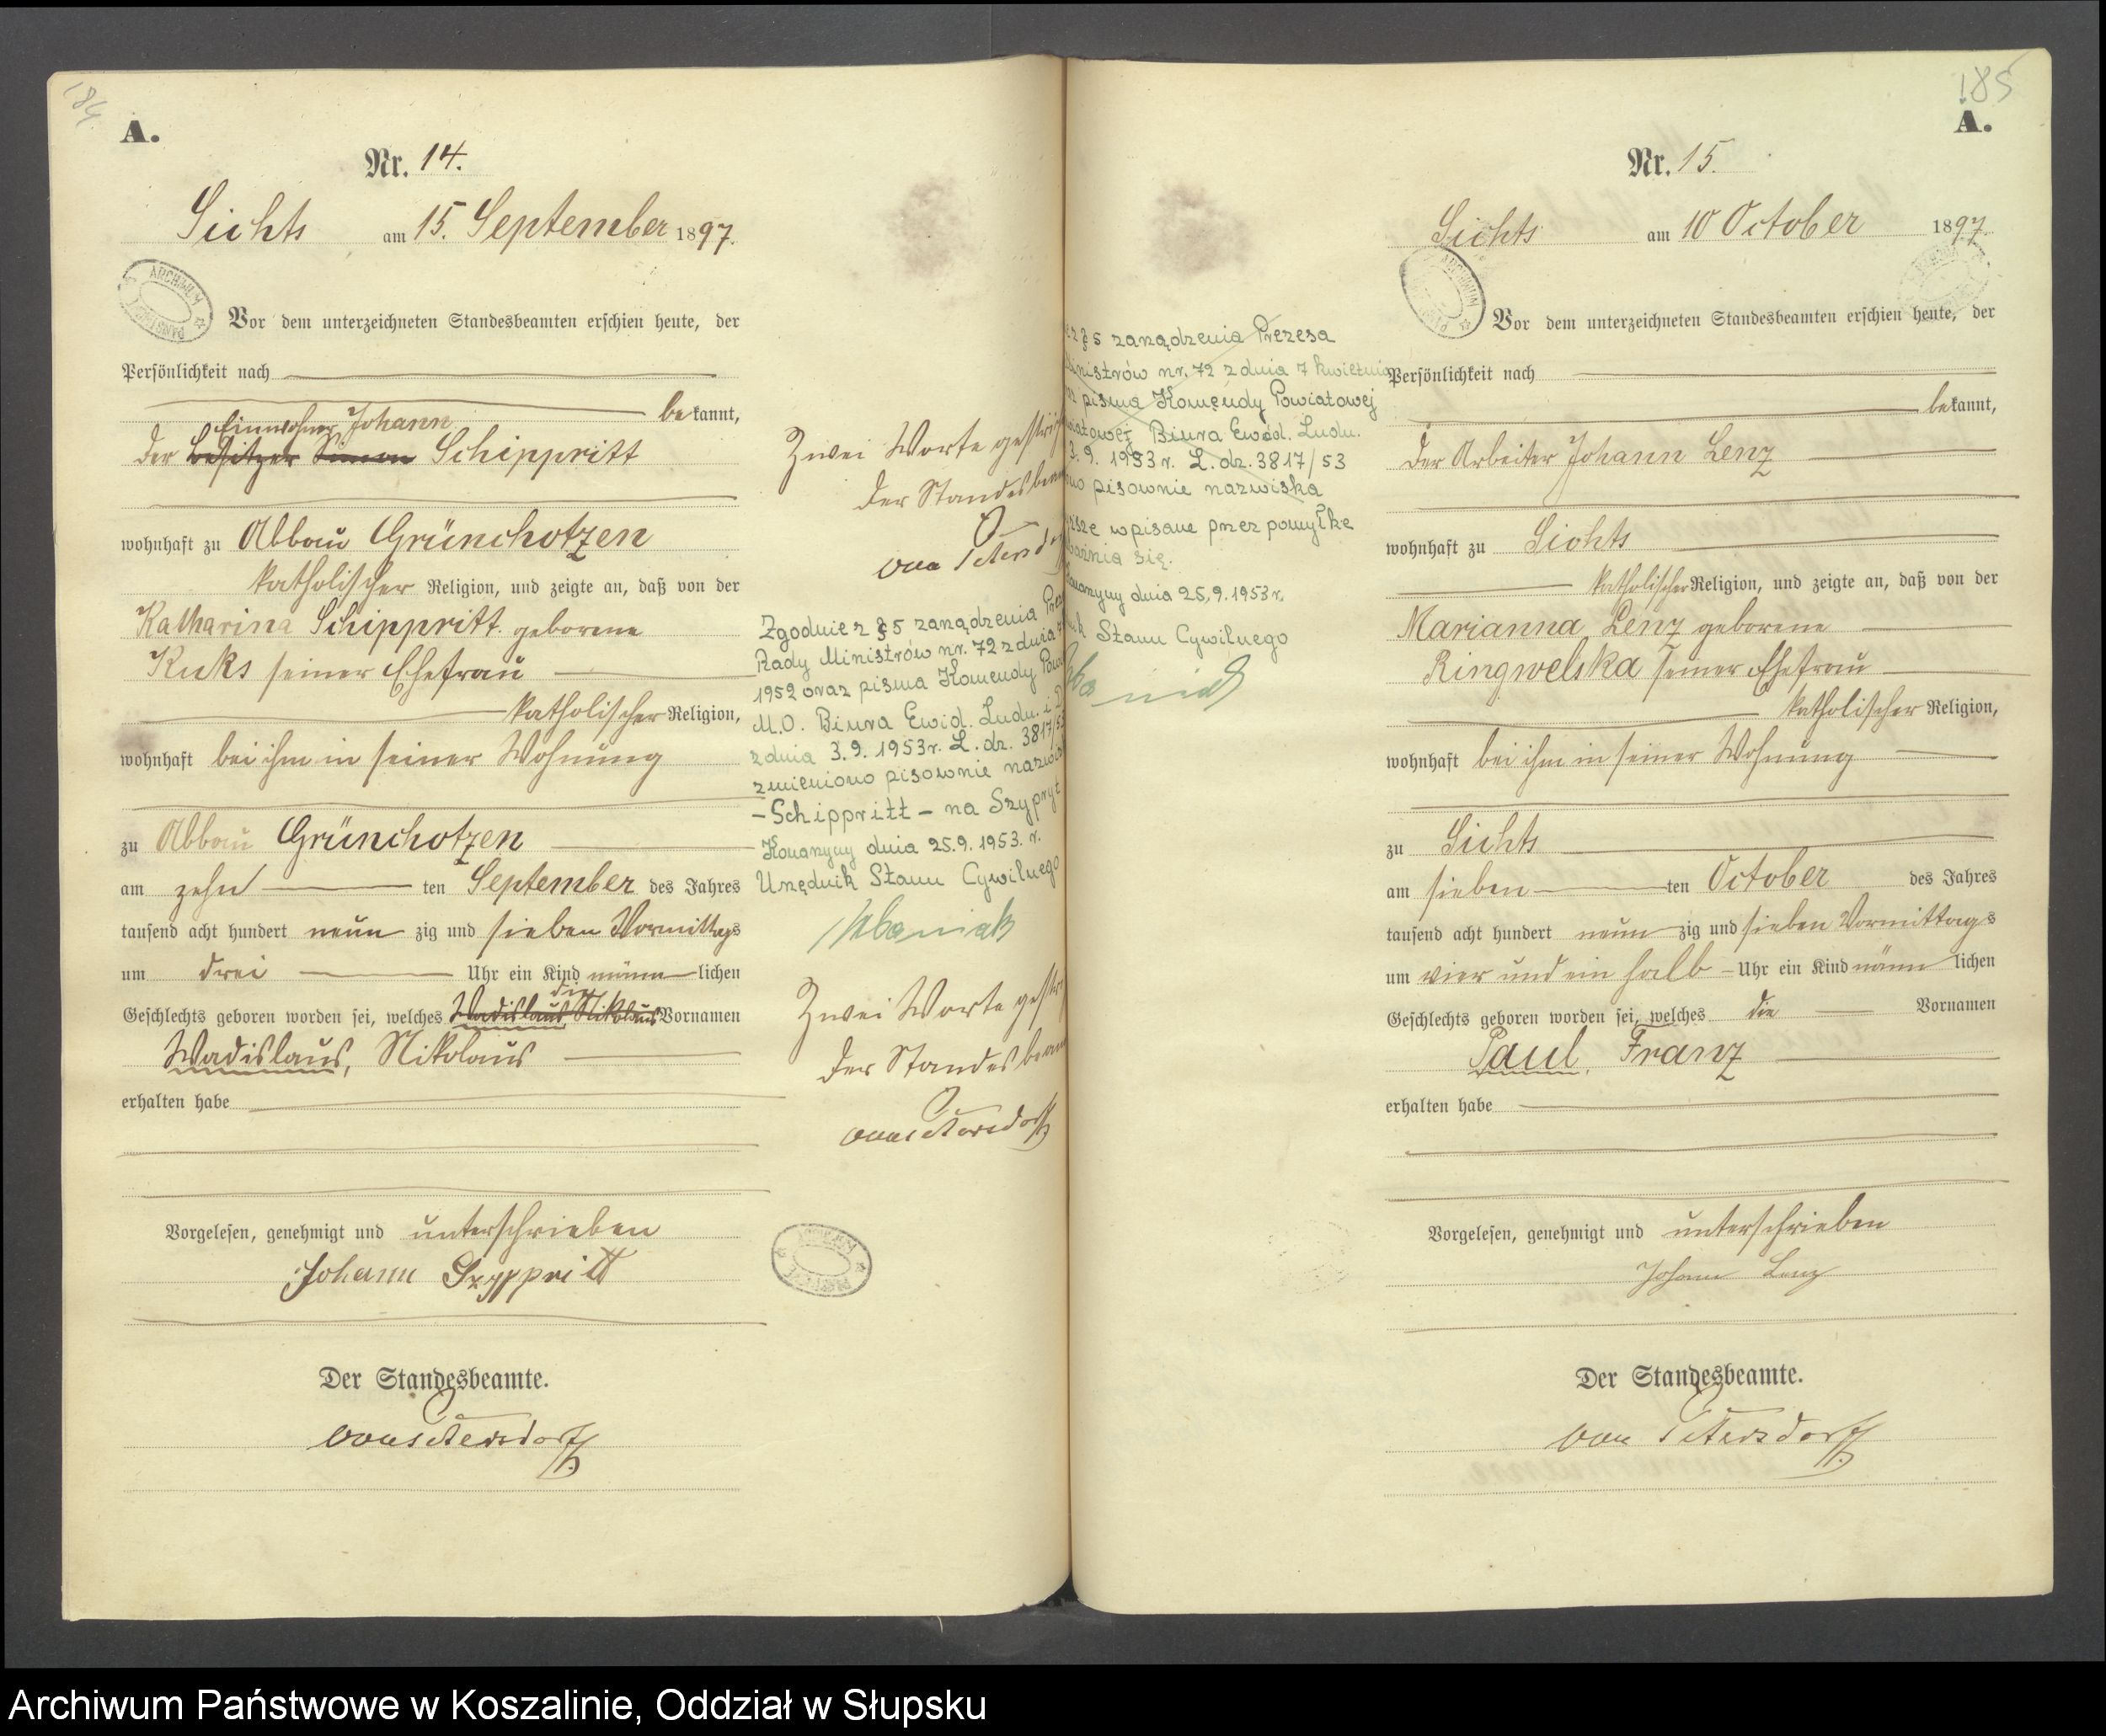 184
A.
Nr. 14.
Sichts am 15. September 1897.
Vor dem unterzeichneten Standesbeamten erschien heute, der
Persönlichkeit nach
bekannt,
Einwohner Johann
der Besitzer Simon Schippritt
wohnhaft zu Abbau Grünchotzen
katholischer Religion, und zeigte an, daß von der
Katharina Schippritt geborene
Kuks seiner Ehefrau
katholischer Religion,
wohnhaft bei ihm in seiner Wohnung
zu Abbau Grünchotzen
am zehn ten September des Jahres
tausend acht hundert neun zig und sieben Vormittags
um drei Uhr ein Kind männlichen
die
Geschlechts geboren worden sei, welches Wadislaus, Nikolaus Vornamen
Wadislaus, Nikolaus
erhalten habe
Vorgelesen, genehmigt und unterschrieben
Johann Szyppritt
Der Standesbeamte.
von Petersdorff
Zwei Worte
der
von
Zgodnie z § 5 zarządzenia
Rady Ministrów nr. 72 z dnia 7
1952 oraz pisma Komendy
M.O. Biura Ewid. Ludn. i
z dnia 3.9.1953 r. L. dz. 3817/53
zmieniono pisownie
- Schippritt - na Szypryt
Konarzyny dnia 25.9.1953. r.
Urzędnik Stanu Cywilnego
Zwei Worte
der
von Petersdorff
185
A.
Nr. 15.
Sichts am 10 October 1897.
Vor dem unterzeichneten Standesbeamten erschien heute, der
Persönlichkeit nach
bekannt,
der Arbeiter Johann Lenz
wohnhaft zu Sichts
katholischer Religion, und zeigte an, daß von der
Marianna Lenz geborene
Ringwelska seiner Ehefrau
katholischer Religion,
wohnhaft bei ihm in seiner Wohnung
zu Sichts
am sieben ten October des Jahres
tausend acht hundert neun zig und sieben Vormittags
um vier und ein halb Uhr ein Kind männlichen
Geschlechts geboren worden sei, welches die Vornamen
Paul, Franz
erhalten habe
Vorgelesen, genehmigt und unterschrieben
Johann Lenz
Der Standesbeamte.
von Petersdorff
z § 5 zarządzenia Prezesa
nr. 72 z dnia 7 kwietnia
pisma Komendy Powiatowej
Biura Ewid. Ludn.
3.9.1953 r. L. dz. 3817/53
pisownie nazwiska
wpisane przez pomyłkę
się.
dnia 25.9.1953 r.
Stanu Cywilnego
Archiwum Państwowe w Koszalinie, Oddział w Słupsku